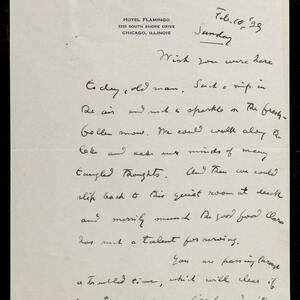 HOTEL FLAMINGO
5520 SOUTH SHORE DRIVE
CHICAGO, ILLINOIS
Feb. 10, '29
Sunday
Wish you were here
today, old man. Such a nip in
the air and such a sparkle on the freshly-
fallen snow. We could walk along the
lake and ease our minds of many
tangled thoughts. And then we could
slip back to this quiet room at dusk
and merrily munch the good food Clara
has such a talent for serving.
You are passing through
a troubled time, which will clear if